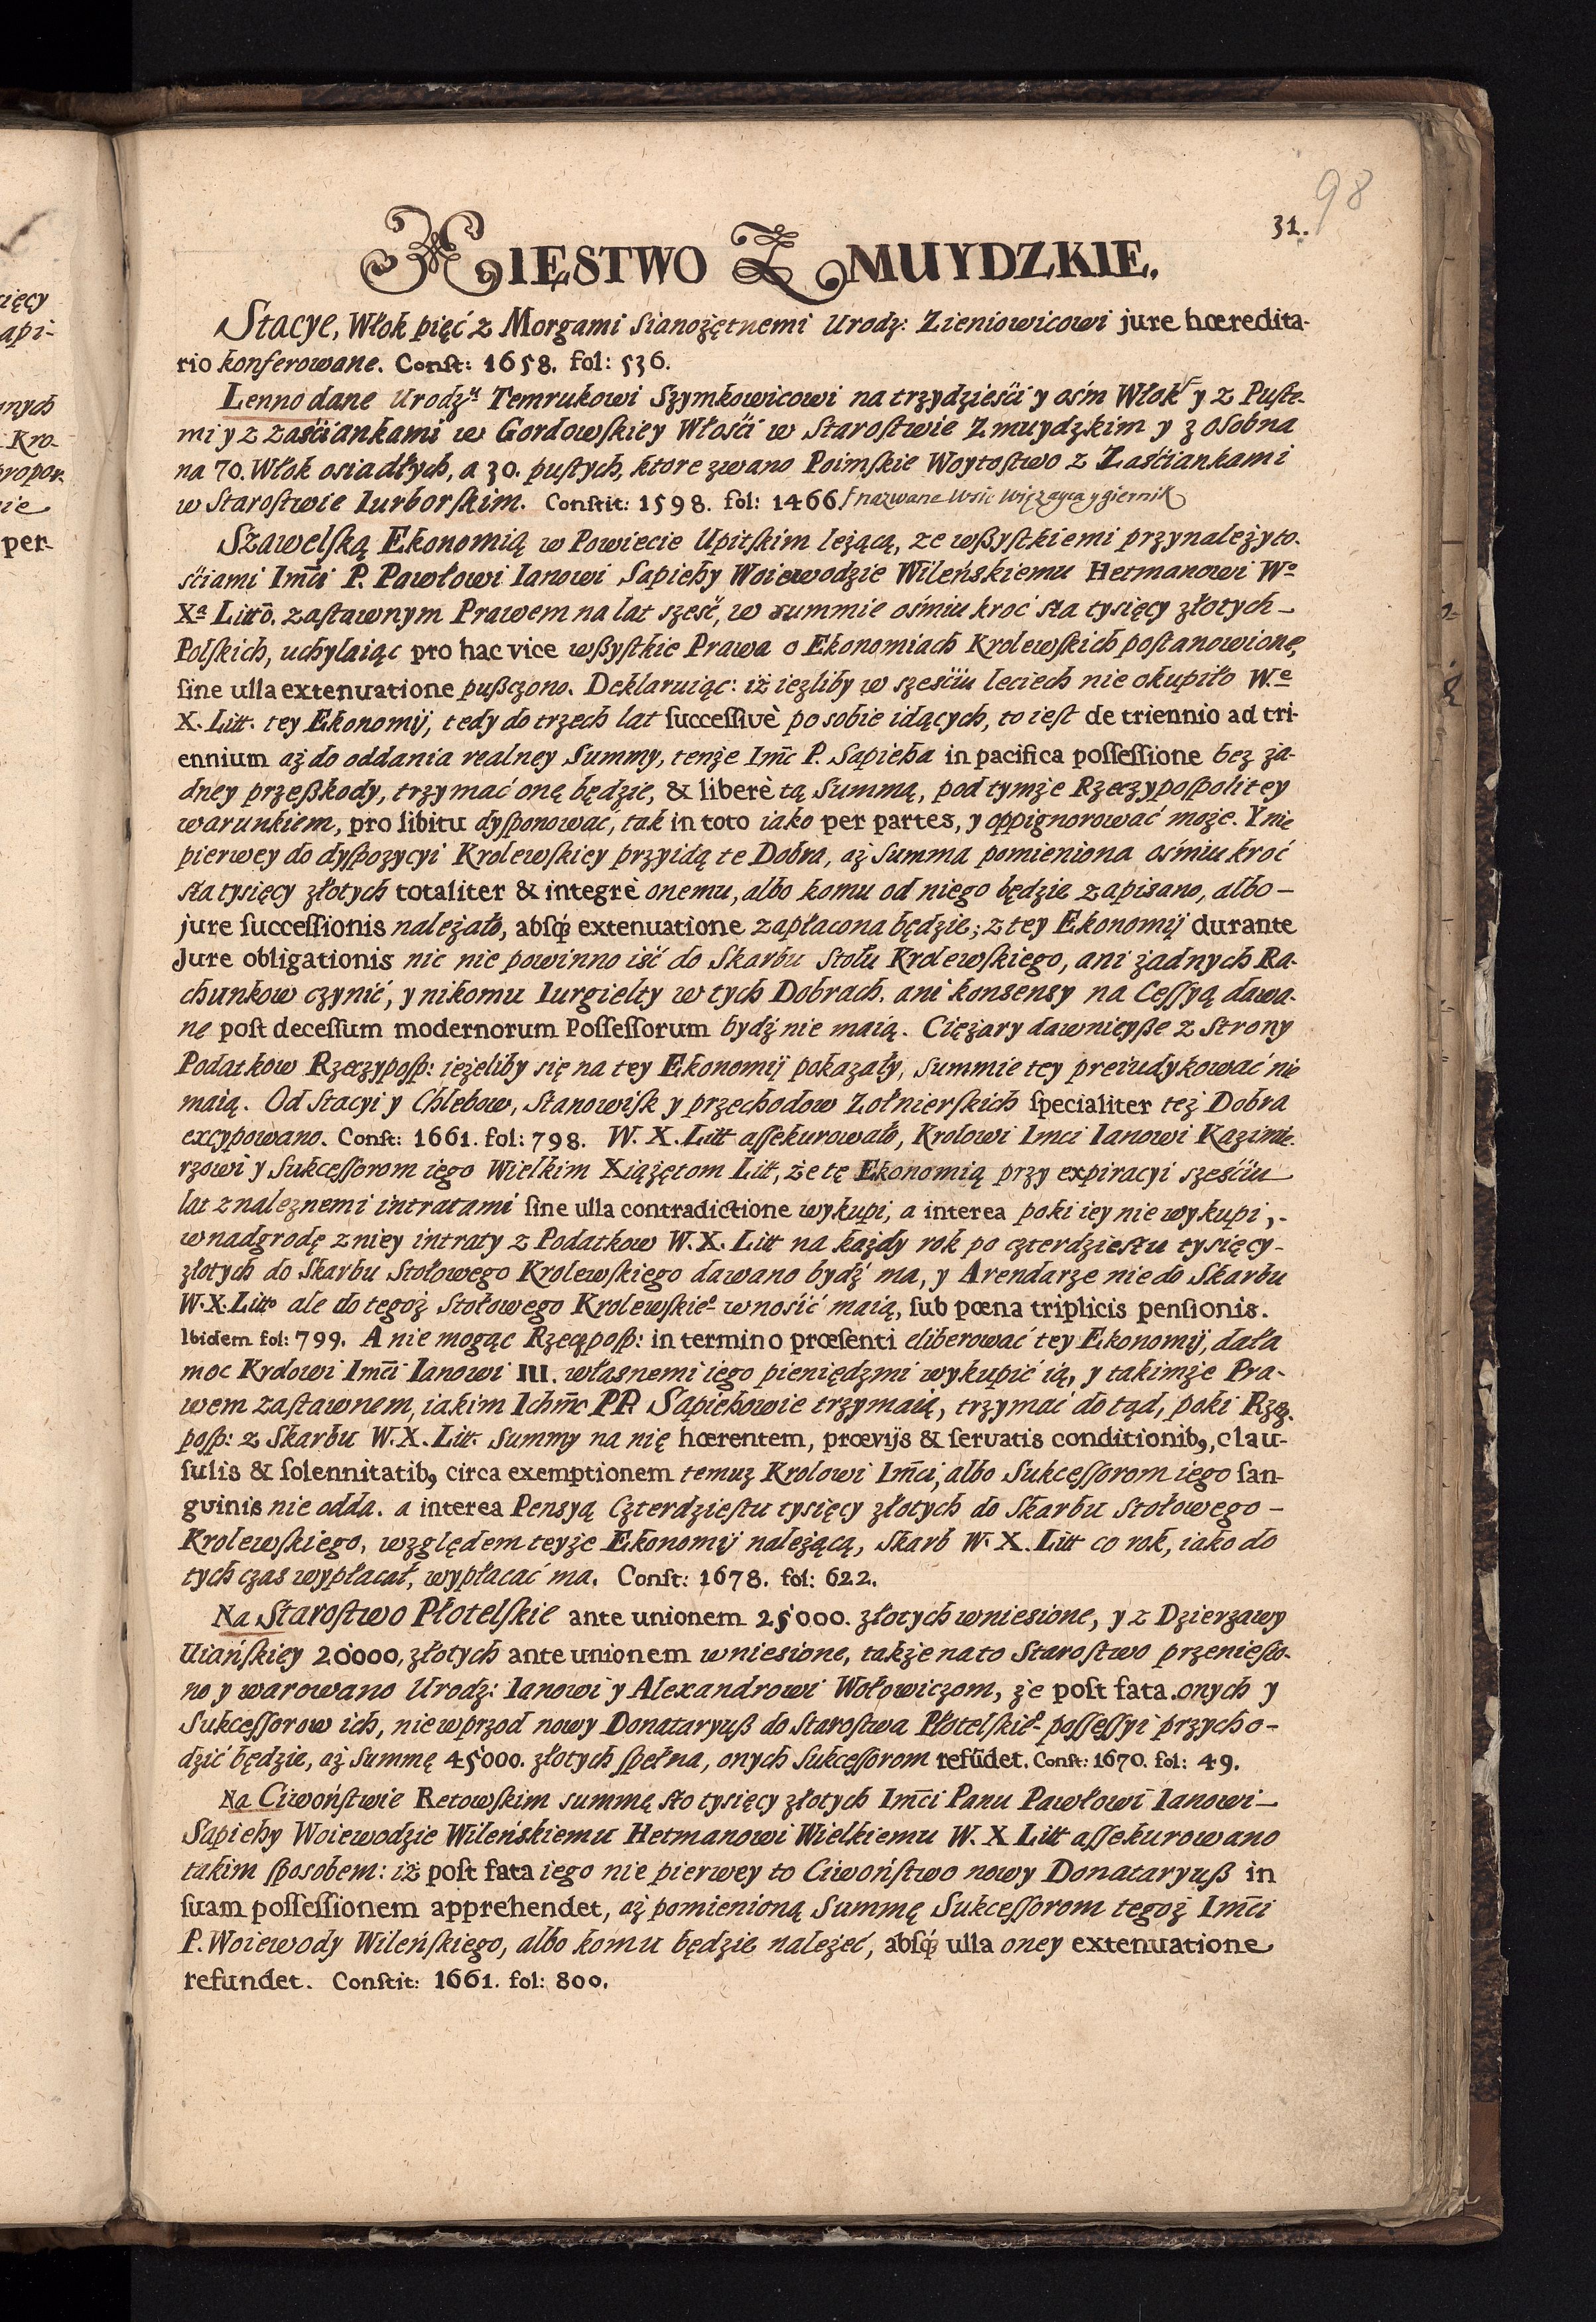 98
31.
XIĘSTWO ZMUYDZKIE.
Stacye, Włok pięć z Morgami sianożętnemi Urodz: Zieniowicowi jure hæredita-
rio konferowane. Conſt: 1658. fol: 536.
Lenno dane Urodzᵘ Temrukowi Szymkowicowi na trzydzieści y ośm Włok y z Puſte-
mi y z zaściankami w Gordowſkiey Włości w Staroſtwie Zmuydzkim y z osobna
na 70. Włok osiadłych, a 30. puſtych, ktore zwano Poimſkie Woytoſtwo z Zaściankami
w Staroſtwie Iurborſkim. Conſtit: 1598. fol: 1466
Szawelſką Ekonomią w Powiecie Upitſkim leżącą, ze wßyſtkiemi przynależyto-
ściami Im̃ci P. Pawłowi Ianowi Sapieħy Woiewodzie Wileńskiemu Hetmanowi Wᵒ
Xᵃ Littõ. zaſtawnym Prawem na lat sześć, w summie ośmiu kroć sta tysięcy złotych –
Polſkich, uchylaiąc pro hac vice wßyſtkie Prawa o Ekonomiach Krolewſkich poſtanowione,
ſine ulla extenuatione pußczono. Deklaruiąc: iż iezliby w sześciu leciech nie okupiło W.ᵉ
X. Litt. tey Ekonomij, tedy do trzech lat ſucceſſivè po sobie idących, to ieſt de triennio ad tri-
ennium aż do oddania realney Summy, tenże Im̃c P. Sapieħa in pacifica poſſeſſione bez ża-
dney przeßkody, trzymać onę będzie, & liberè tą Summą, pod tymże Rzeczypoſpolitey
warunkiem, pro libitu dyſponować, tak in toto iako per partes, y oppignorować może. Y nie
pierwey do dyſpozycyi Krolewſkiey przyidą te Dobra, aż Summa pomieniona ośmiu kroć
sta tysięcy złotych totaliter & integrè onemu, albo komu od niego będzie zapisano, albo –
jure ſucceſſionis należało, abſq́; extenuatione zapłacona będzie; z tey Ekonomij durante
Jure obligationis nic nie powinno iść do Skarbu Stołu Krolewſkiego, ani żadnych Ra-
chunkow czynić, y nikomu Iurgielty w tych Dobrach, ani konsensy na Ceſſyą dawa-
ne poſt deceſſum modernorum Poſſeſſorum bydź nie maią. Ciężary dawnieyße z Strony
Podatkow Rzeczypoſp: ieżeliby się na tey Ekonomij pokazały, summie tey preiudykować nie
maią. Od Stacyi y Chlebow, Stanowiſk y przechodow Zołnierſkich ſpecialiter też Dobra
excypowano. Conſt: 1661. fol: 798. W. X. Litt aſſekurowało, Krolowi Imci Ianowi Kazimie-
rzowi y Sukceſſorom iego Wielkim Xiążętom Litt, że tę Ekonomią przy expiracyi sześciu
lat z należnemi intratami ſine ulla contradictione wykupi, a interea poki iey nie wykupi, -
w nadgrodę z niey intraty z Podatkow W. X. Litt na każdy rok po czterdzieſtu tysięcy -
złotych do Skarbu Stołowego Krolewſkiego dawano bydź ma, y Arendarze nie do Skarbu
W. X. Littᵒ ale do tegoż Stołowego Krolewſkieᵒ wnosić maią, ſub pœna triplicis penſionis.
Ibidem fol: 799. A nie mogąc Rzecąpoſp: in termino prœſenti eliberować tey Ekonomij, dała
moc Krolowi Im̃ci Ianowi III. własnemi iego pieniędzmi wykupić ią, y takimże Pra-
wem zaſtawnem, iakim Ichm̃c PP Sapieħowie trzymaią, trzymać do tąd, poki Rzez.
poſp: z Skarbu W. X. Litt. Summy na nię hœrentem, prœvijs & ſervatis conditionibꝫ, clau-
ſulis & ſolennitatibꝫ circa exemptionem temuż Krolowi Im̃ci, albo Sukceſſorom iego ſan-
guinis nie odda. a interea Pensyą Czterdzieſtu tysięcy złotych do Skarbu Stołowego –
Krolewſkiego, względem teyże Ekonomij należącą, Skarb W. X. Litt co rok, iako do
tych czas wypłacał, wypłacac ma. Conſt: 1678. fol: 622.
Na Staroſtwo Płotelſkie ante unionem 25000. złotych wniesione, y z Dzierzawy
Uiańſkiey 20000, złotych ante unionem wniesione, także na to Staroſtwo przeniesio-
no y warowano Urodz: Ianowi y Alexandrowi Wołowiczom, że poſt fata onych y
Sukceſſorow ich, nie wprzod nowy Donataryuß do Staroſtwa Płotelſkieᵒ poſſeſſyi przycho-
dzić będzie, aż Summę 45000. złotych ſpełna, onych Sukceſſorom refũdet. Conſt: 1670. fol: 49.
Na Ciwońſtwie Retowſkim summę sto tysięcy złotych Im̃ci Panu Pawłowi Ianowi –
Sapieħy Woiewodzie Wileńskiemu Hetmanowi Wielkiemu W. X Litt aſſekurowano
takim ſposobem: iż poſt fata iego nie pierwey to Ciwońſtwo nowy Donataryuß in
ſuam poſſeſſionem apprehendet, aż pomienioną Summę Sukceſſorom tegoż Im̃ci
P. Woiewody Wileńſkiego, albo komu będzie należeć, abſq́; ulla oney extenuatione
refundet. Conſtit: 1661. fol: 800.